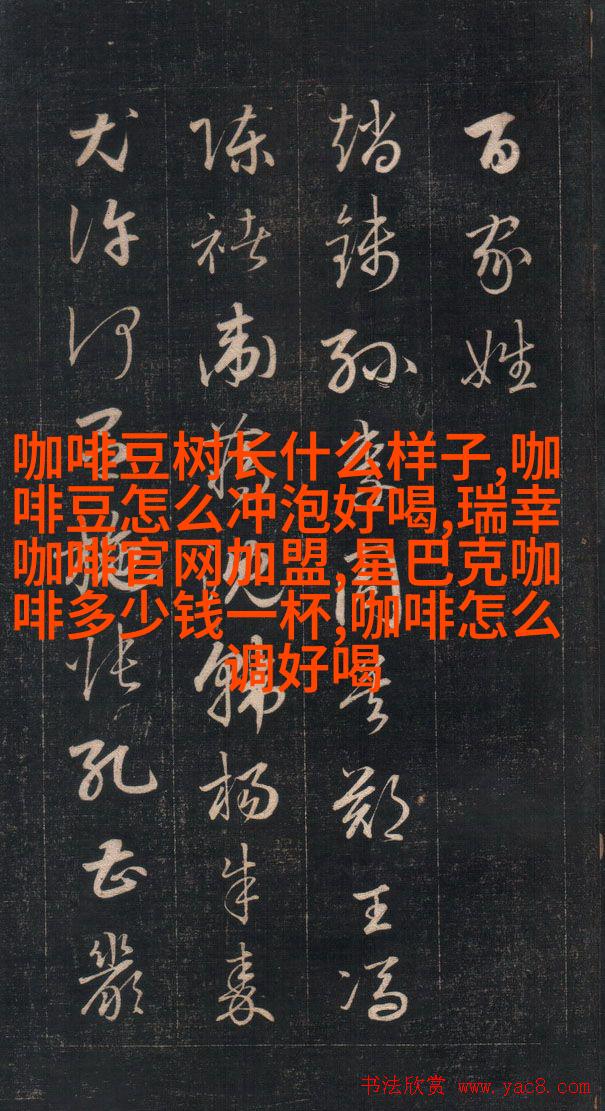 百家姓
趙錢孫李周吳鄭王馮
陳褚衛蔣沈韓楊朱秦
尤許何呂施張孔曹嚴
咖啡豆树长什么样子,咖
啡豆怎么冲泡好喝,瑞幸
咖啡官网加盟,星巴克咖
啡多少钱一杯,咖啡怎么
调好喝
书法欣赏 www.yac8.com